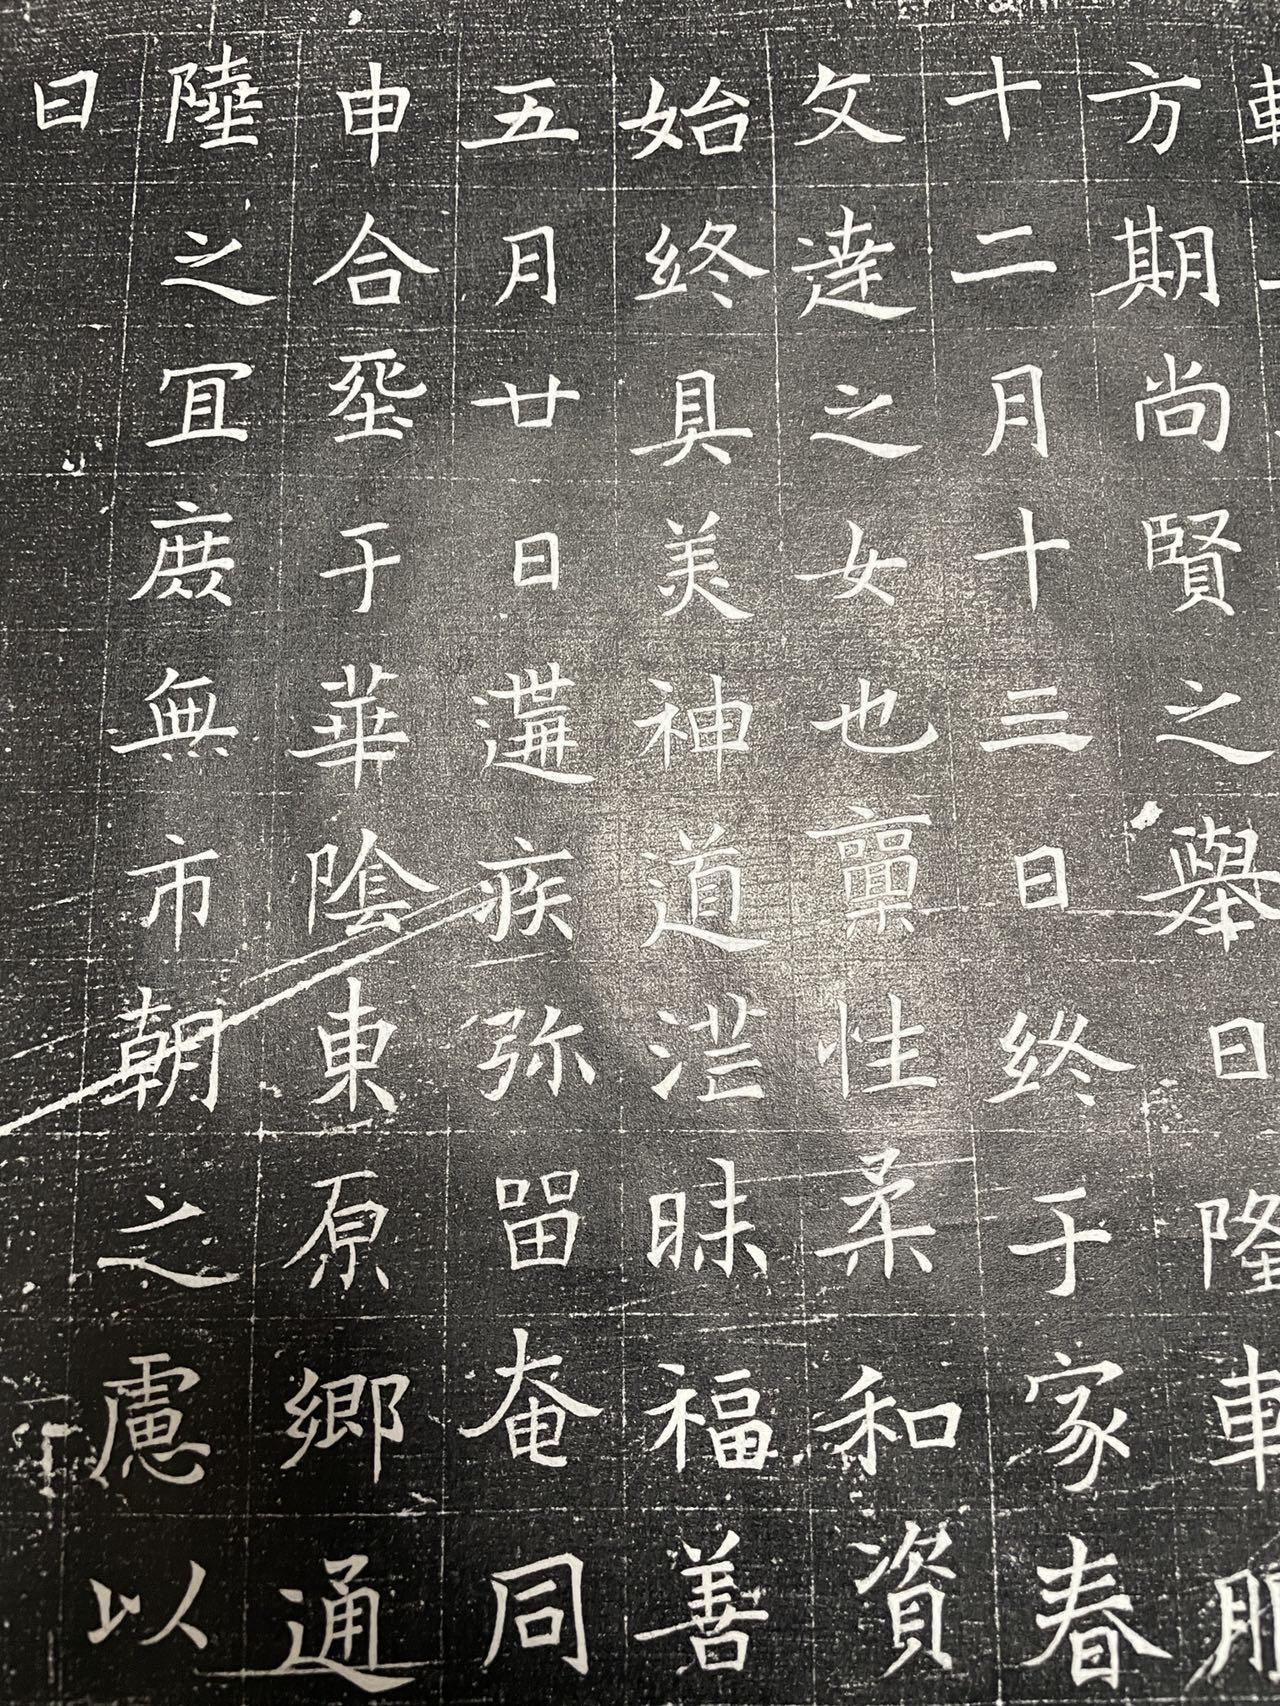 方期尚賢之舉日隆車服
十二月十三日終于家春
文達之女也稟性柔和資
始終具美神道茫昧福善
五月廿日遘疾弥留奄同
申合窆于華陰東原鄉通
陸之宜庶無市朝之慮以
曰